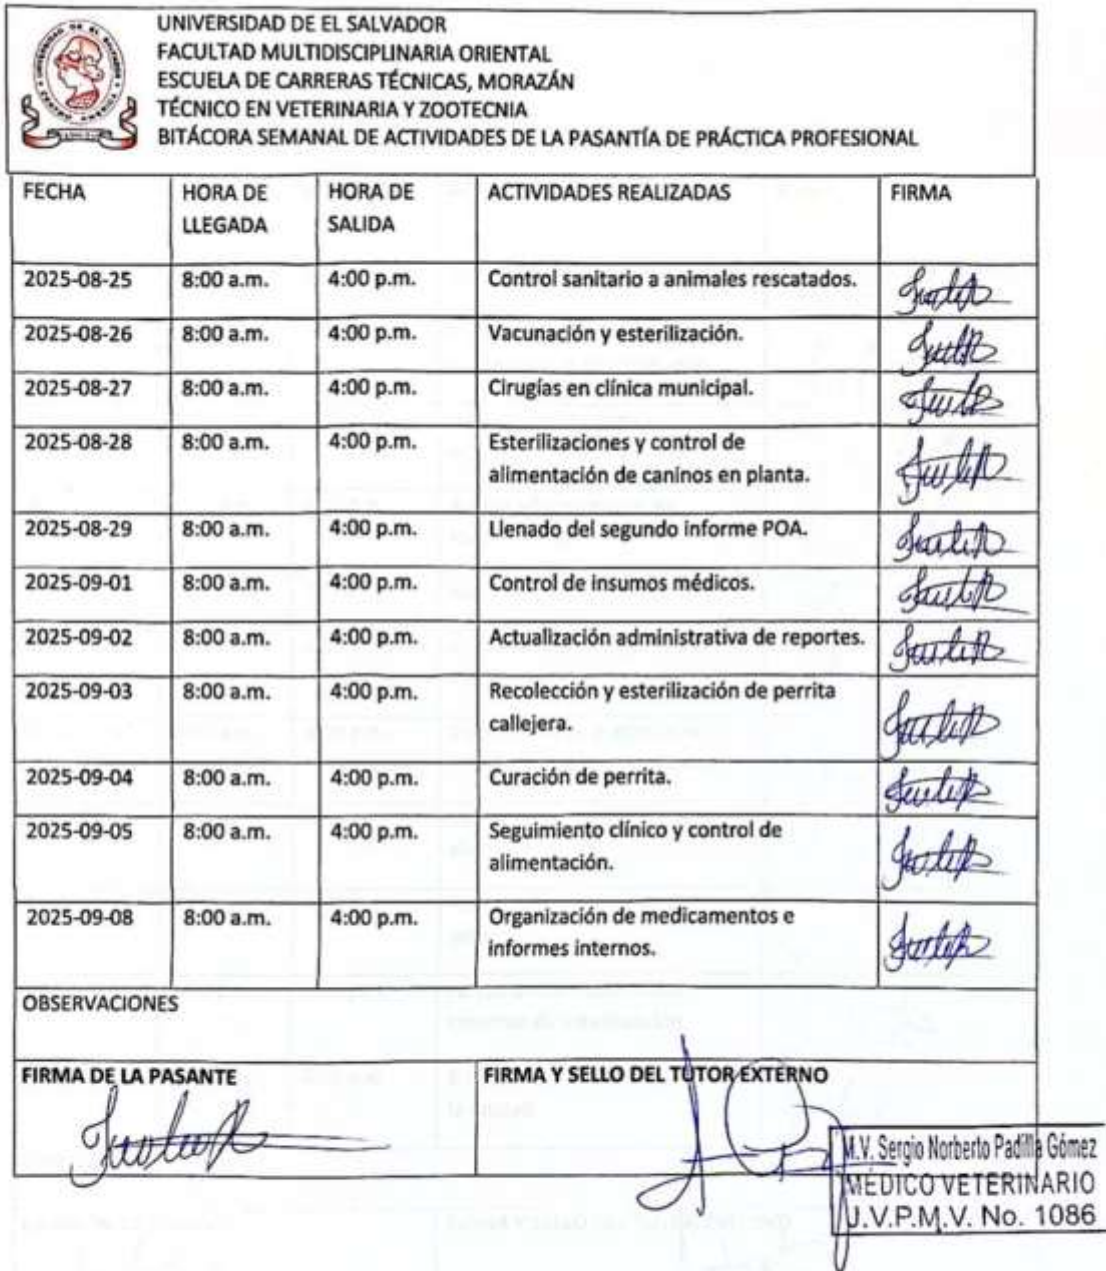 UNIVERSIDAD DE EL SALVADOR
FACULTAD MULTIDISCIPLINARIA ORIENTAL
ESCUELA DE CARRERAS TÉCNICAS, MORAZÁN
TÉCNICO EN VETERINARIA Y ZOOTECNIA
BITÁCORA SEMANAL DE ACTIVIDADES DE LA PASANTÍA DE PRÁCTICA PROFESIONAL
FECHA HORA DE LLEGADA HORA DE SALIDA ACTIVIDADES REALIZADAS FIRMA
2025-08-25 8:00 a.m. 4:00 p.m. Control sanitario a animales rescatados.
2025-08-26 8:00 a.m. 4:00 p.m. Vacunación y esterilización.
2025-08-27 8:00 a.m. 4:00 p.m. Cirugías en clínica municipal.
2025-08-28 8:00 a.m. 4:00 p.m. Esterilizaciones y control de
alimentación de caninos en planta.
2025-08-29 8:00 a.m. 4:00 p.m. Llenado del segundo informe POA.
2025-09-01 8:00 a.m. 4:00 p.m. Control de insumos médicos.
2025-09-02 8:00 a.m. 4:00 p.m. Actualización administrativa de reportes.
2025-09-03 8:00 a.m. 4:00 p.m. Recolección y esterilización de perrita
callejera.
2025-09-04 8:00 a.m. 4:00 p.m. Curación de perrita.
2025-09-05 8:00 a.m. 4:00 p.m. Seguimiento clínico y control de
alimentación.
2025-09-08 8:00 a.m. 4:00 p.m. Organización de medicamentos e
informes internos.
OBSERVACIONES
FIRMA DE LA PASANTE FIRMA Y SELLO DEL TUTOR EXTERNO
M.V. Sergio Norberto Padilla Gómez
MÉDICO VETERINARIO
J.V.P.M.V. No. 1086